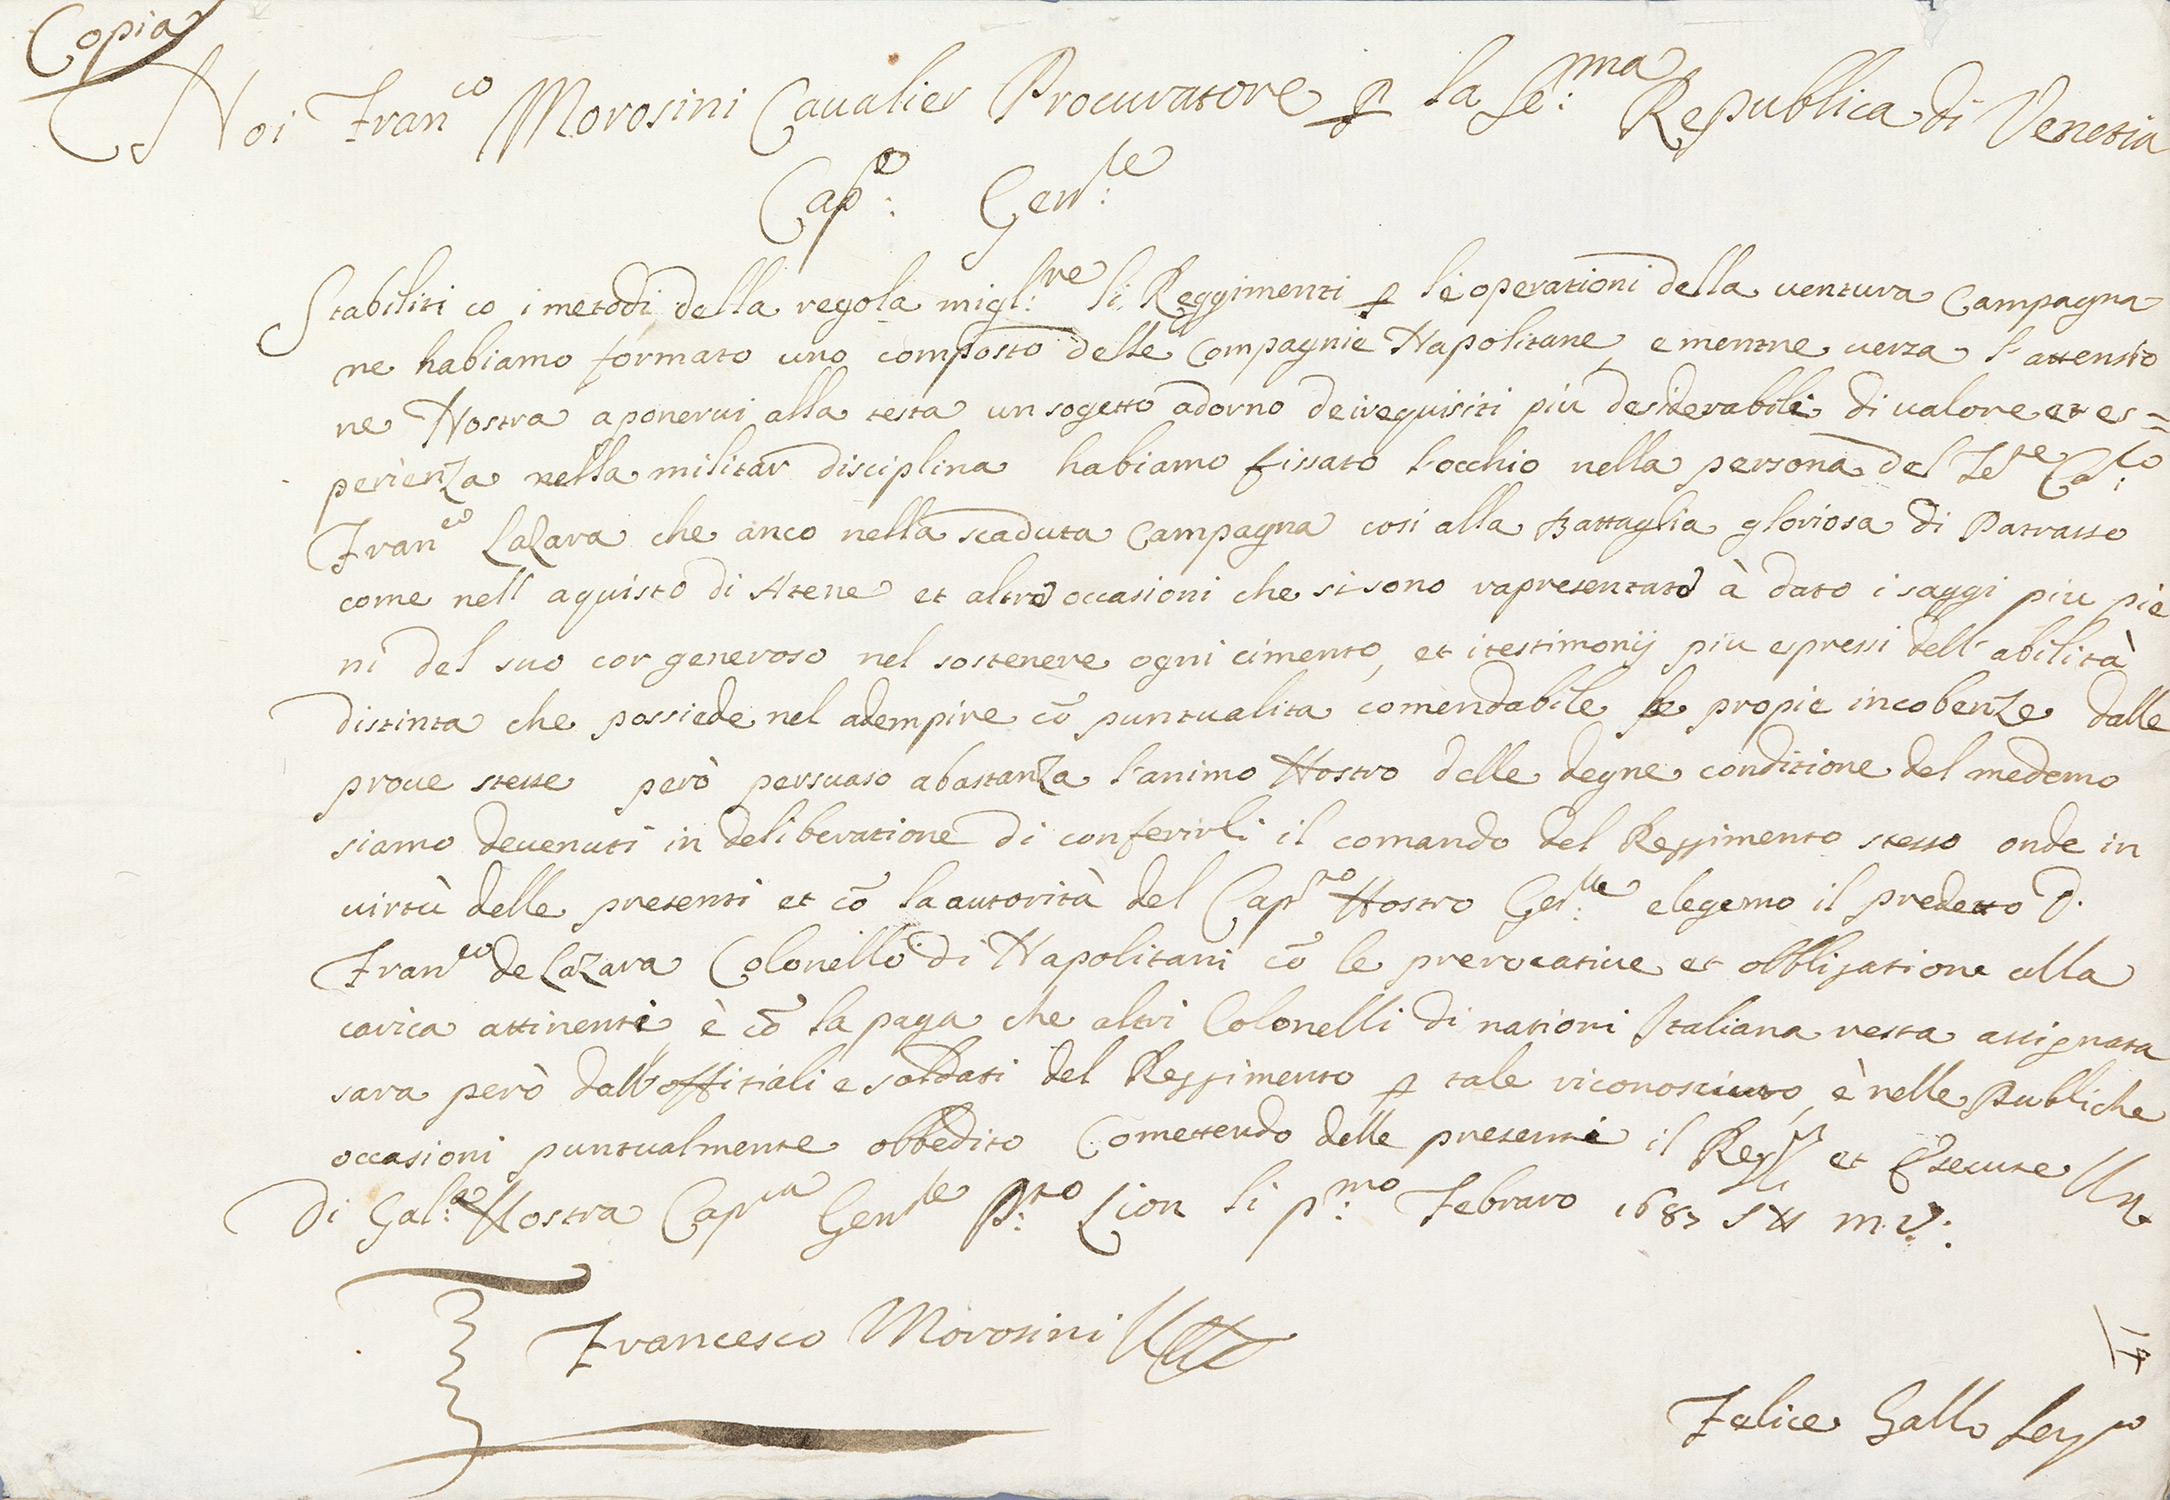 Copia
Noi Fran.co Morosini Caualier Procuratore p la Se:ma Republica di Venetia
Cap:o Gen:le
Stabiliti co i metodi della regola migl:re li Reggimenti p le operationi della uentura Campagna
ne habiamo formato uno composto delle Compagnie Napolitane, e mentre uerza l'attentio
ne Nostra a ponerui alla testa un sogetto adorno dei requisiti piu desiderabili di ualore et es=
perienza nella militar disciplina habiamo fissato l'occhio nella persona del Te:te Co:lo
Fran:co Lazara che anco nella scaduta Campagna cosi alla Battaglia gloriosa di Patrasso
come nell aquisto di Atene et altro occasioni che si sono rapresentato à dato i saggi piu pie
ni del suo cor generoso nel sostenere ogni cimento, et i testimonij piu espressi dell'abilità
distinta che possiede nel adempire cō puntualita comendabile le propie incobenze dalle
proue stesse però persuaso abastanza l'animo Nostro delle degne conditione del medemo
siamo deuenuti in deliberatione di conferirli il comando del Reggimento stesso onde in
uirtù delle presenti et cō la autorità del Cap:to Nostro Gen:le elegemo il predetto D.
Fran:co de Lazara Colonello di Napolitani cō le prerocatiue et obbligatione alla
carica attinenti è cō la paga che altri Colonelli di nationi Italiana resta assignata
sara però dall'offitiali e soldati del Reggimento p tale riconosciuto, è nelle Publiche
occasioni puntualmente obbedito Comettendo delle presenti il Regg et Esecute
Di Gal:a Nostra Cap:na Gen:le P:to Lion li p:mo Febraro 1687 SN m.V:
Francesco Morosini
Felice Gallo Seg:rio